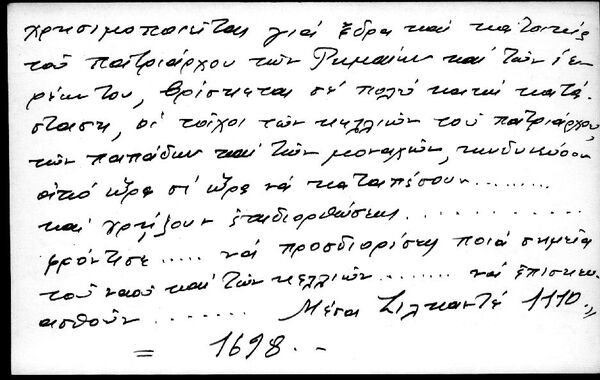 χρησιμοποιεῖται γιά ἕδρα καί κατοικία
τοῦ πατριάρχου τῶν Ρωμαίων καί τῶν ἱερ
ρέων του, βρίσκεται σέ πολύ κακή κατά-
σταση, οἱ τοῖχοι τῶν κελλιῶν τοῦ πατριάρχου,
τῶν παπάδων καί τῶν μοναχῶν, κινδυνεύουν
ἀπό ὥρα σέ ὥρα νά καταπέσουν.........
καί χρήζουν ἐπιδιορθώσεως..........
φρόντισε..... νά προσδιορίσης ποιά σημεῖα
τοῦ ναοῦ καί τῶν κελλιῶν........ νά ἐπισκευ
ασθοῦν........ Μέσα Ζιλκαντέ 1110.,,
= 1698.-